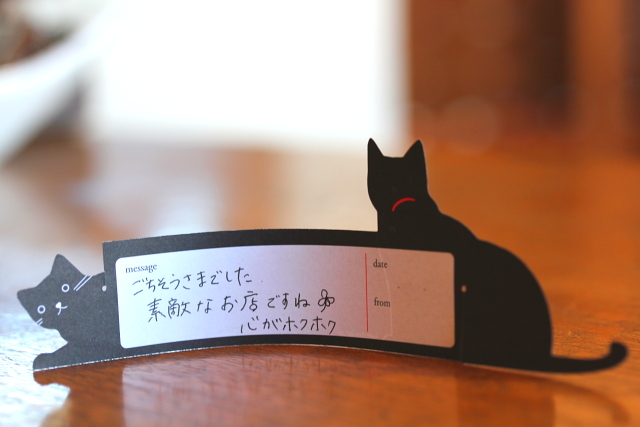 message
ごちそうさまでした
素敵なお店ですね
心がホクホク
date
from